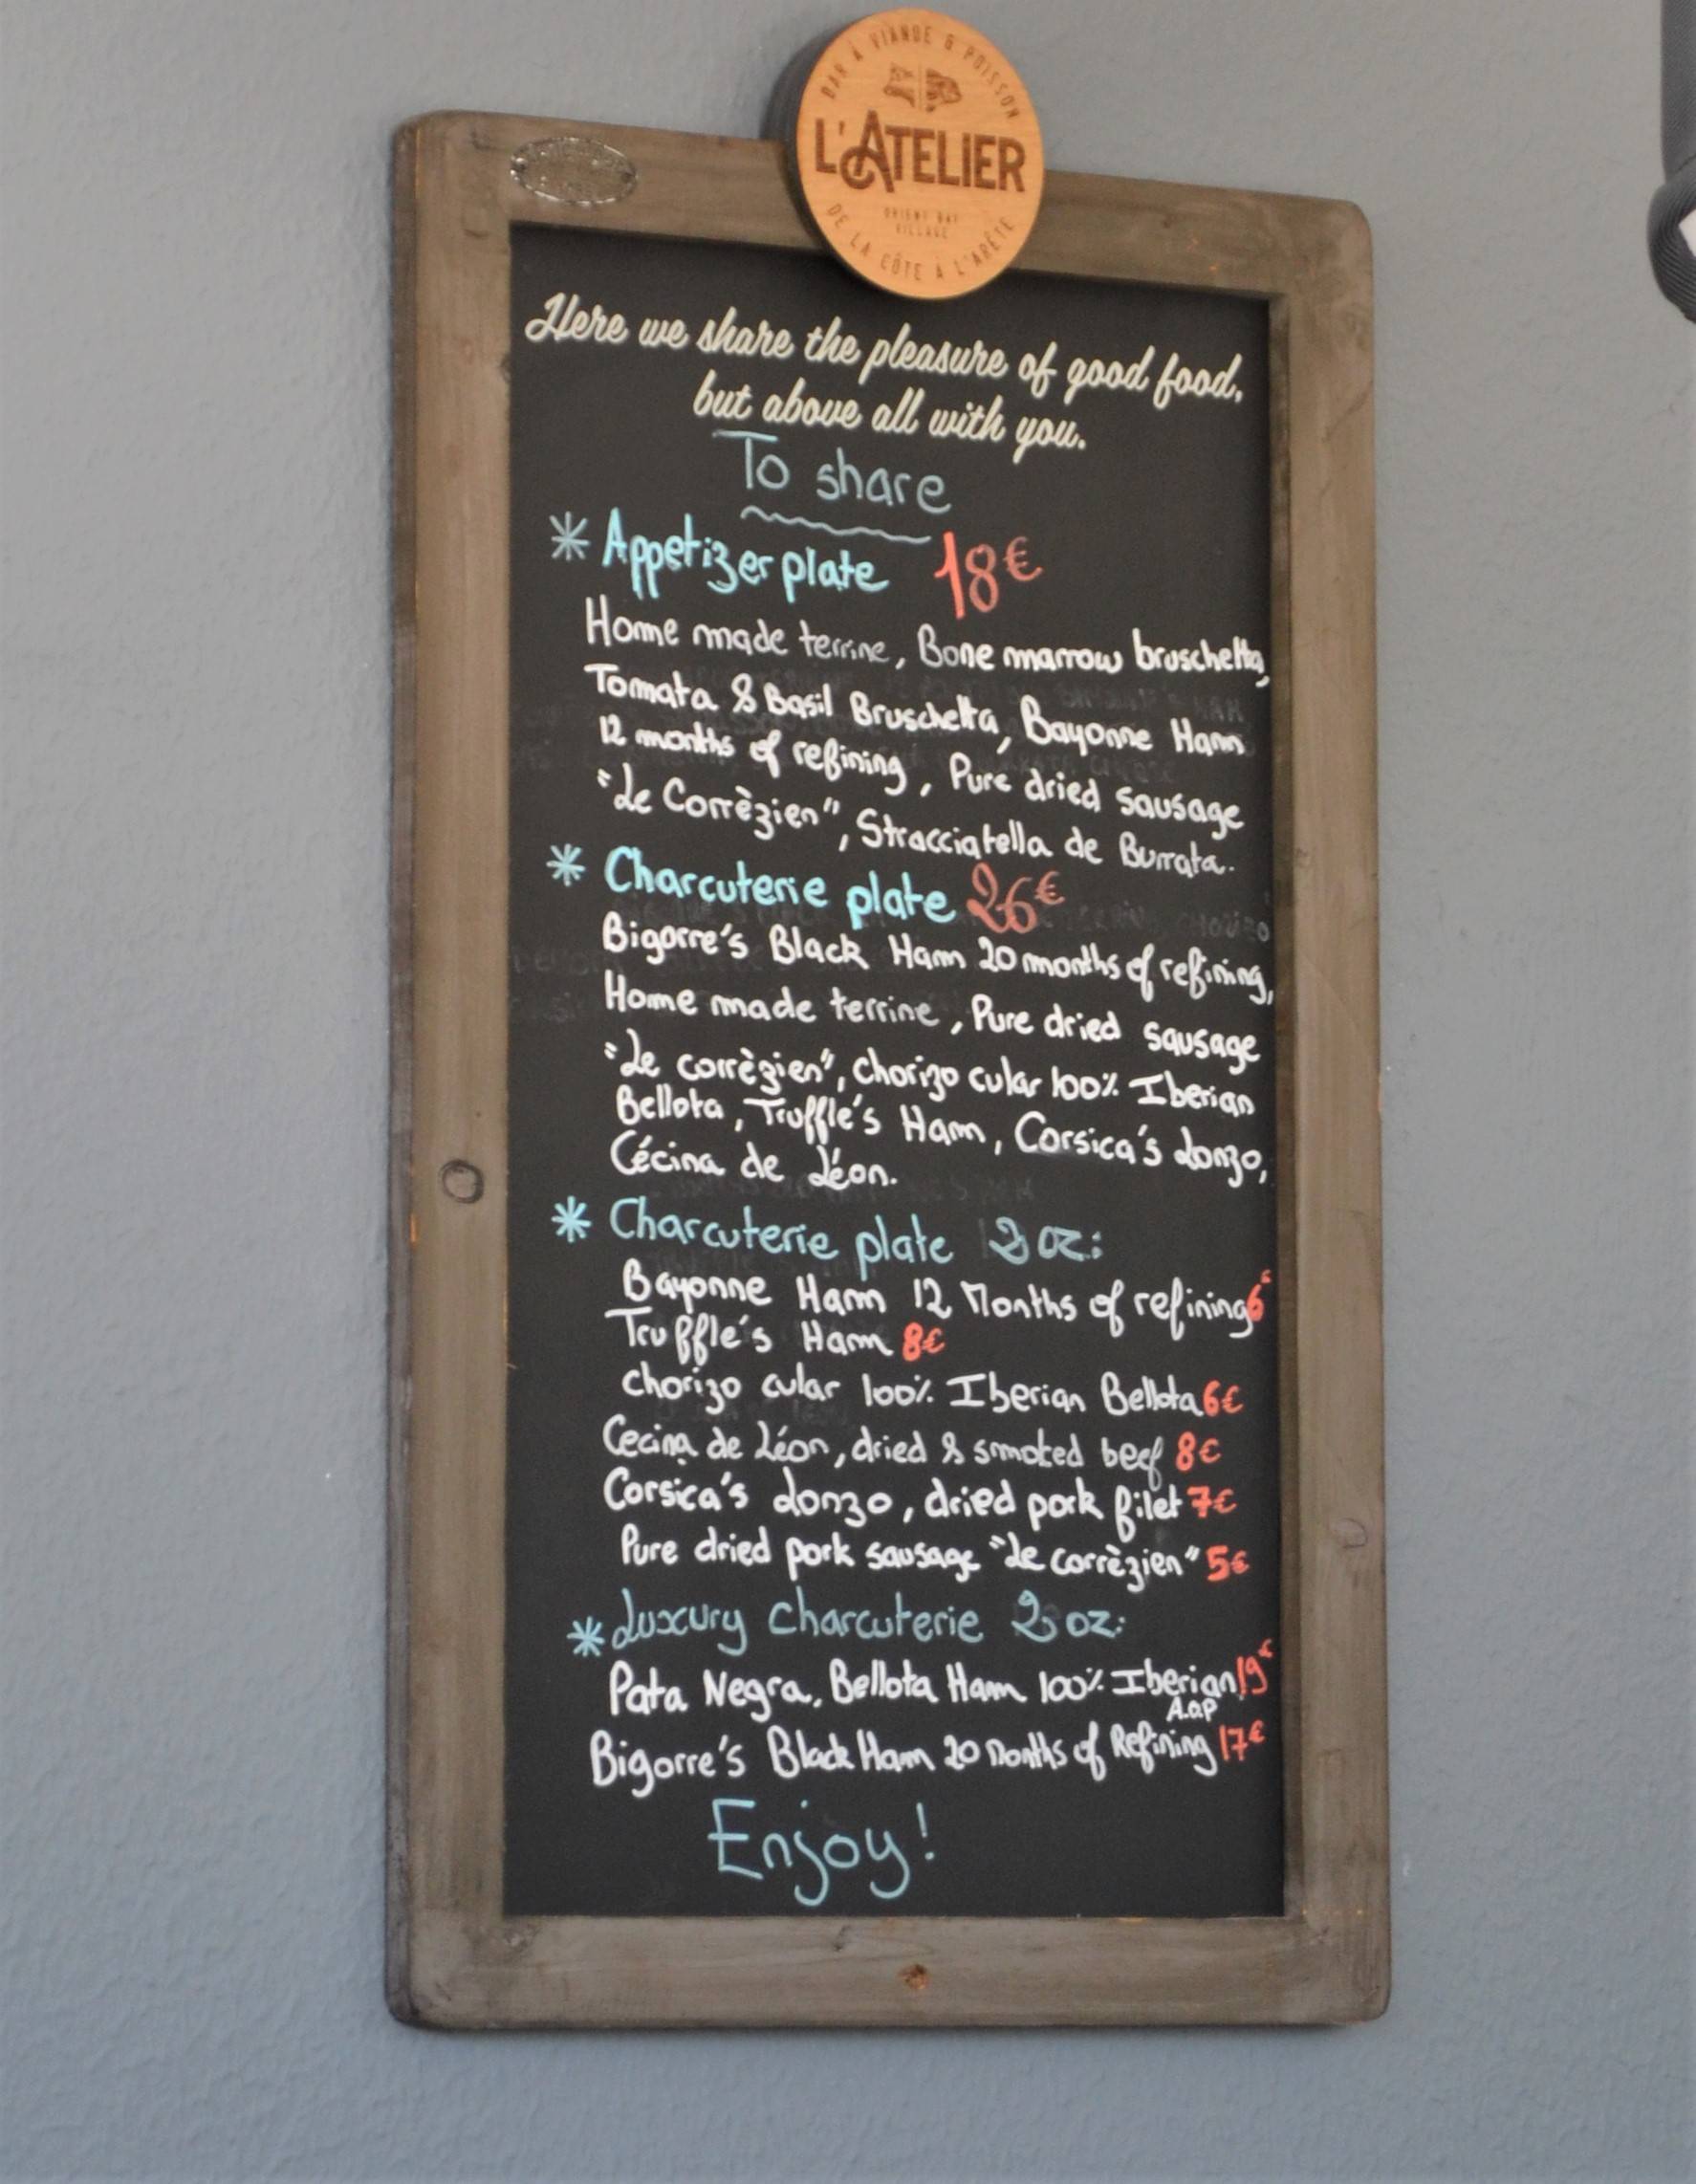 BAR À VIANDE & POISSON
L'ATELIER
ORIENT BAY
VILLAGE
DE LA CÔTE À L'ARÊTE
Here we share the pleasure of good food,
but above all with you.
To share
* Appetizer plate 18€
Home made terrine, Bone marrow bruschetta,
Tomata & Basil Bruschetta, Bayonne Ham
12 months of refining, Pure dried sausage
"Le Corrèzien", Stracciatella de Burrata.
* Charcuterie plate 26€
Bigorre's Black Ham 20 months of refining,
Home made terrine, Pure dried sausage
"Le corrèzien", Chorizo cular 100% Iberian
Bellota, Truffle's Ham, Corsica's Lonzo,
Cécina de Léon.
* Charcuterie plate 2 oz:
Bayonne Ham 12 Months of refining 6€
Truffle's Ham 8€
chorizo cular 100% Iberian Bellota 6€
Cecina de Léon, dried & smoked beef 8€
Corsica's Lonzo, dried pork filet 7€
Pure dried pork sausage "Le corrèzien" 5€
* Luxury Charcuterie 2 oz:
Pata Negra, Bellota Ham 100% Iberian 19€
A.O.P
Bigorre's Black Ham 20 Months of Refining 17€
Enjoy!